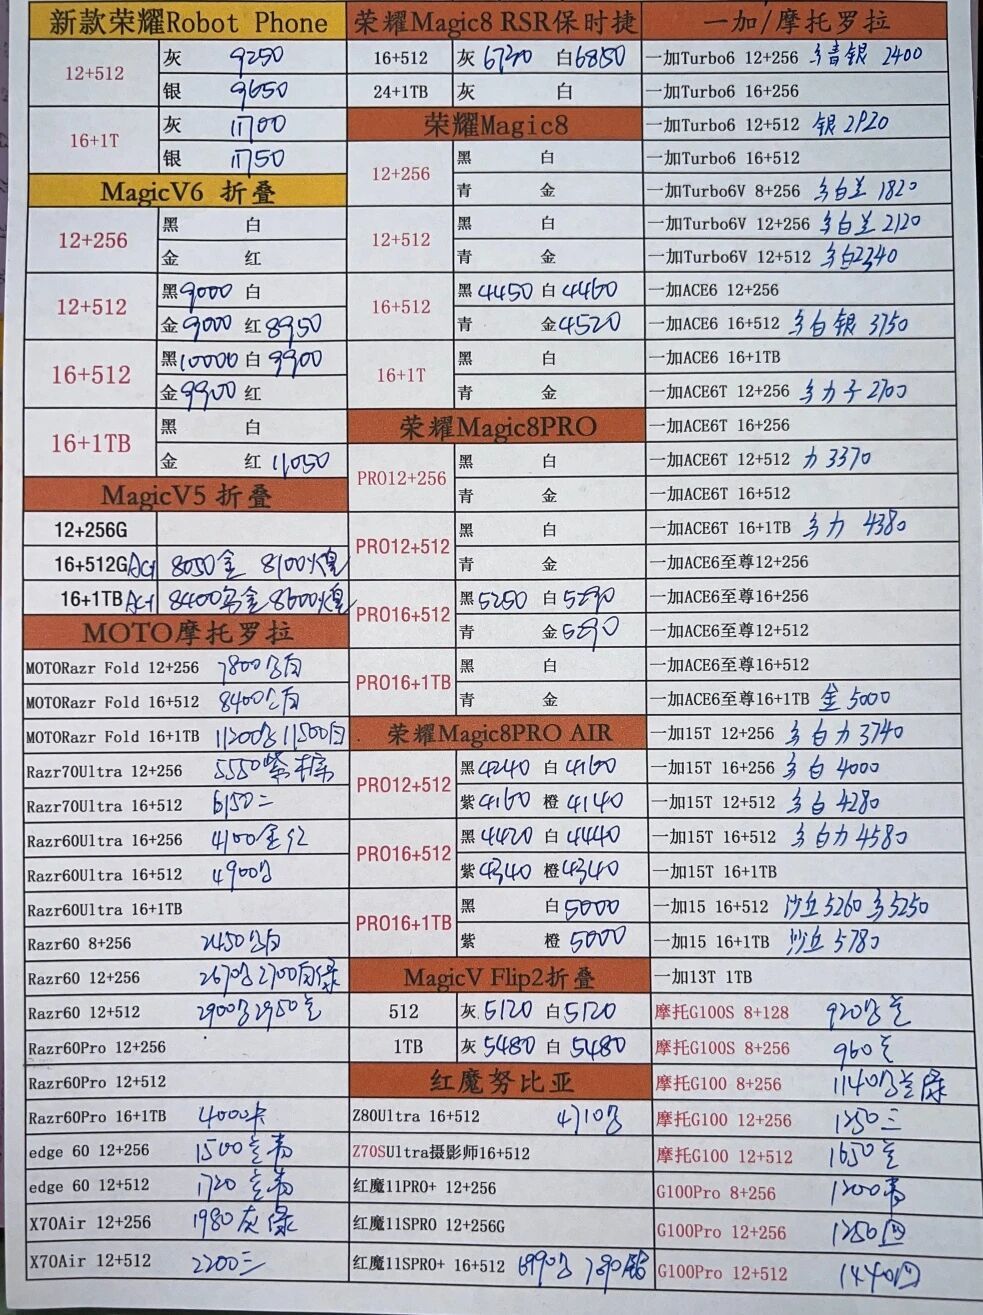 新款荣耀Robot Phone
12+512 灰 9250
银 9650
16+1T 灰 11700
银 11750
MagicV6 折叠
12+256 黑 白
金 红
12+512 黑9000 白
金9000 红8950
16+512 黑10000 白9900
金9900 红
16+1TB 黑 白
金 红11050
MagicV5 折叠
12+256G
16+512G 8050金 8100
16+1TB 8400 金 8600
MOTO摩托罗拉
MOTORazr Fold 12+256 7800 白
MOTORazr Fold 16+512 8400 白
MOTORazr Fold 16+1TB 11200 11500白
Razr70Ultra 12+256 5550紫
Razr70Ultra 16+512 6150二
Razr60Ultra 16+256 4100金红
Razr60Ultra 16+512 4900
Razr60Ultra 16+1TB
Razr60 8+256 2450 白
Razr60 12+256 2670 2700白绿
Razr60 12+512 2900 2950
Razr60Pro 12+256
Razr60Pro 12+512
Razr60Pro 16+1TB 4000
edge 60 12+256 1500
edge 60 12+512 1720
X70Air 12+256 1980灰绿
X70Air 12+512 2200三
荣耀Magic8 RSR保时捷
16+512 灰 6730 白6850
24+1TB 灰 白
荣耀Magic8
12+256 黑 白
青 金
12+512 黑 白
青 金
16+512 黑4450 白4460
青 金4520
16+1T 黑 白
青 金
荣耀Magic8PRO
PRO12+256 黑 白
青 金
PRO12+512 黑 白
青 金
PRO16+512 黑5250 白5290
青 金5290
PRO16+1TB 黑 白
青 金
荣耀Magic8PRO AIR
PRO12+512 黑4240 白4160
紫4160 橙4140
PRO16+512 黑4420 白4440
紫4340 橙4340
PRO16+1TB 黑 白5000
紫 橙5000
MagicV Flip2折叠
512 灰5120 白5120
1TB 灰5480 白5480
红魔努比亚
Z80Ultra 16+512 4710
Z70SUltra摄影师16+512
红魔11PRO+ 12+256
红魔11SPRO 12+256G
红魔11SPRO+ 16+512 6990
一加/摩托罗拉
一加Turbo6 12+256 青银 2400
一加Turbo6 16+256
一加Turbo6 12+512 银 2920
一加Turbo6 16+512
一加Turbo6V 8+256 白兰 1820
一加Turbo6V 12+256 白兰 2120
一加Turbo6V 12+512 白2340
一加ACE6 12+256
一加ACE6 16+512 白银 3750
一加ACE6 16+1TB
一加ACE6T 12+256 力 2700
一加ACE6T 16+256
一加ACE6T 12+512 力 3370
一加ACE6T 16+512
一加ACE6T 16+1TB 力 4380
一加ACE6至尊12+256
一加ACE6至尊16+256
一加ACE6至尊12+512
一加ACE6至尊16+512
一加ACE6至尊16+1TB 金 5000
一加15T 12+256 白力 3740
一加15T 16+256 白 4000
一加15T 12+512 白 4280
一加15T 16+512 白力 4580
一加15T 16+1TB
一加15 16+512 沙丘 5260 5250
一加15 16+1TB 沙丘 5780
一加13T 1TB
摩托G100S 8+128 920
摩托G100S 8+256 960
摩托G100 8+256 1140
摩托G100 12+256 1250三
摩托G100 12+512 1650
G100Pro 8+256 1200
G100Pro 12+256 1250四
G100Pro 12+512 1440四